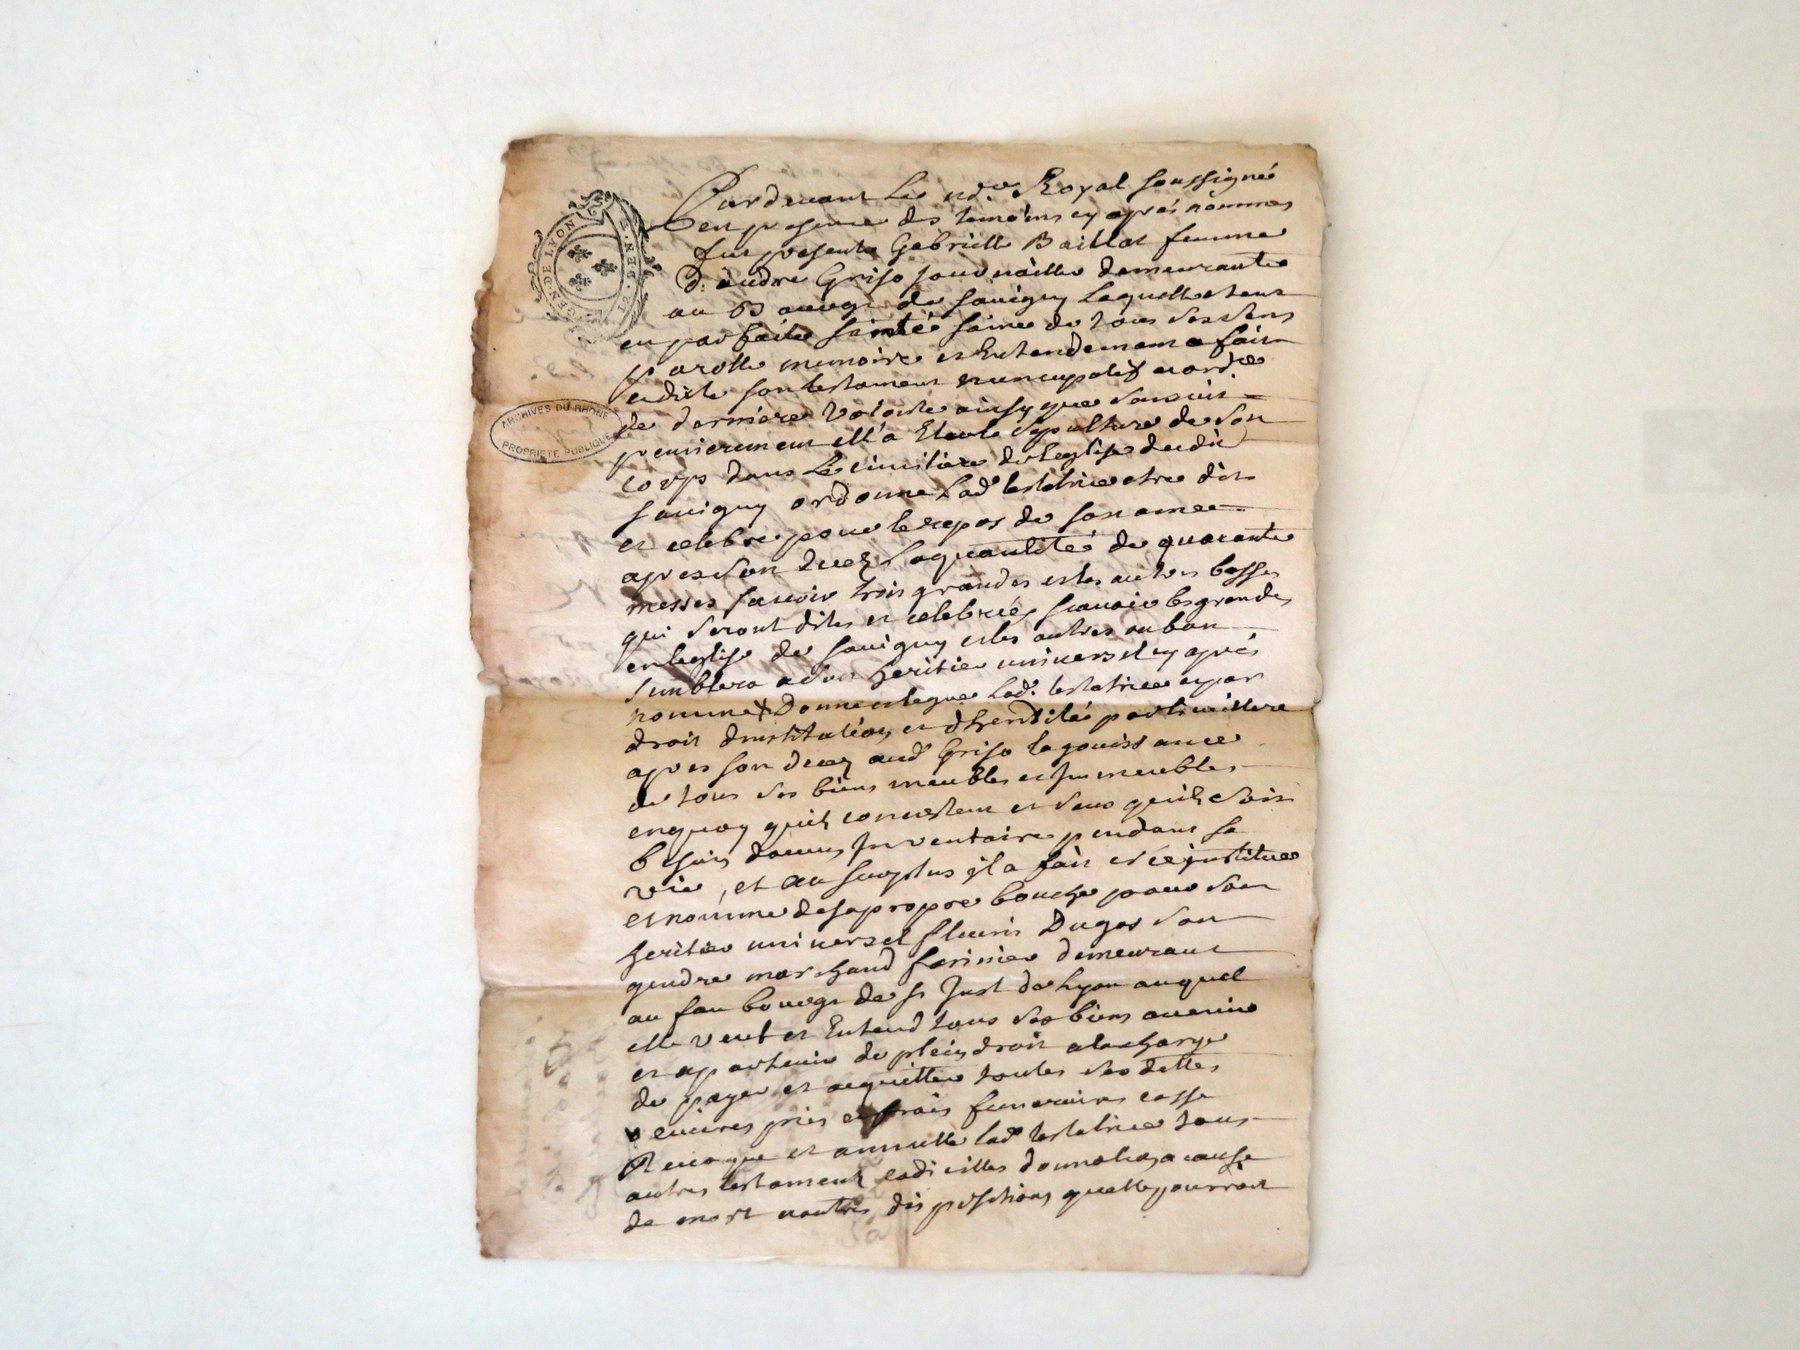 GEN DE LYON
2. S. DEN.
ARCHIVES DU RHONE
PROPRIETE PUBLIQUE
Pardevant Le nore Royal soussigné
et en presence des temoins cy aprés nòmmes
fut presente Gabrielle Baillat femme
d'andre Griso journaillier demeurante
au Bourg de Savigny laquelle etant
en parfaite santé saine de tous ses sens
parolle memoire et Entendement a fait
et dicte son testament nuncupatif et ordce
de derniere Volonte ainsy que sensuit
premierement ell'a Eleu la sepulture de son
corps dans Le cimitiere de leglise dudit
Savigny ordonne Lade testatrice etre dit
et celebre pour le repos de son ame
apres son decez La quantité de quarante
messes savoir trois grandes et les autres basses
qui seront dites et celebrés scavoir les grandes
en leglise de Savigny et les autres ou bon
semblera a son heritier universel cy aprés
nommé Donne et legue lade testatrice a par
droit dinstitution et dheredité particuilliere
apres son decez aud Griso la jouissance
de tous ses biens meubles et Immeubles
en quoy quils consistent et sans quil soit
besoin daucun Inventaire pendant sa
vie, et au surplus jl a fait et jnstitue
et nomme de sa propre bouche pour son
heritier universel fleuris Dugas son
gendre marchand farinier demeurant
au faubourg de st Just de Lyon auquel
elle veut et Entend tous ses biens avenir
et apartenir de plein droit a la charge
de payer et acquitter toutes ses dettes
œuvres pies et frais funeraires casse
Revoque et annulle lade testatrice tous
autres testament codicilles donnation a cause
de mort et autres dispositions quelle pourroit